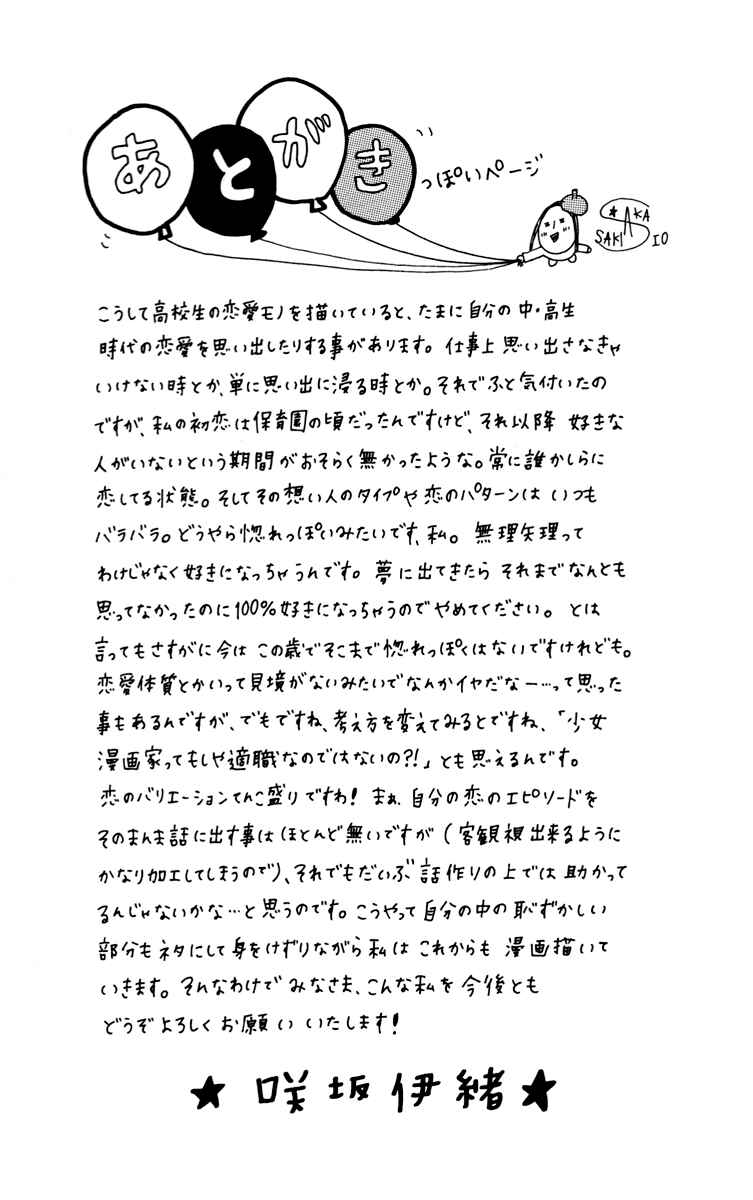 あとがき
っぽいページ
★SAKA
SAKI IO
こうして高校生の恋愛モノを描いていると、たまに自分の中・高生
時代の恋愛を思い出したりする事があります。仕事上思い出さなきゃ
いけない時とか、単に思い出に浸る時とか。それでふと気付いたの
ですが、私の初恋は保育園の頃だったんですけど、それ以降 好きな
人がいないという期間がおそらく無かったような。常に誰かしらに
恋してる状態。そしてその想い人のタイプや恋のパターンは いつも
バラバラ。どうやら惚れっぽいみたいです、私。 無理矢理って
わけじゃなく好きになっちゃうんです。 夢に出てきたら それまでなんとも
思ってなかったのに100%好きになっちゃうのでやめてください。 とは
言ってもさすがに今は この歳でそこまで惚れっぽくはないですけれども。
恋愛体質とかいって見境がないみたいでなんかイヤだなー…って思った
事もあるんですが、でもですね、考え方を変えてみるとですね、「少女
漫画家ってもしや適職なのではないの?!」とも思えるんです。
恋のバリエーションてんこ盛りですわ! まぁ、自分の恋のエピソードを
そのまんま話に出す事はほとんど無いですが(客観視出来るように
かなり加工してしまうので)、それでもだいぶ話作りの上では助かって
るんじゃないかな…と思うのです。こうやって自分の中の恥ずかしい
部分もネタにして身をけずりながら私は これからも 漫画描いて
いきます。 そんなわけで みなさま、こんな私を 今後とも
どうぞよろしく お願い いたします!
★咲坂伊緒★